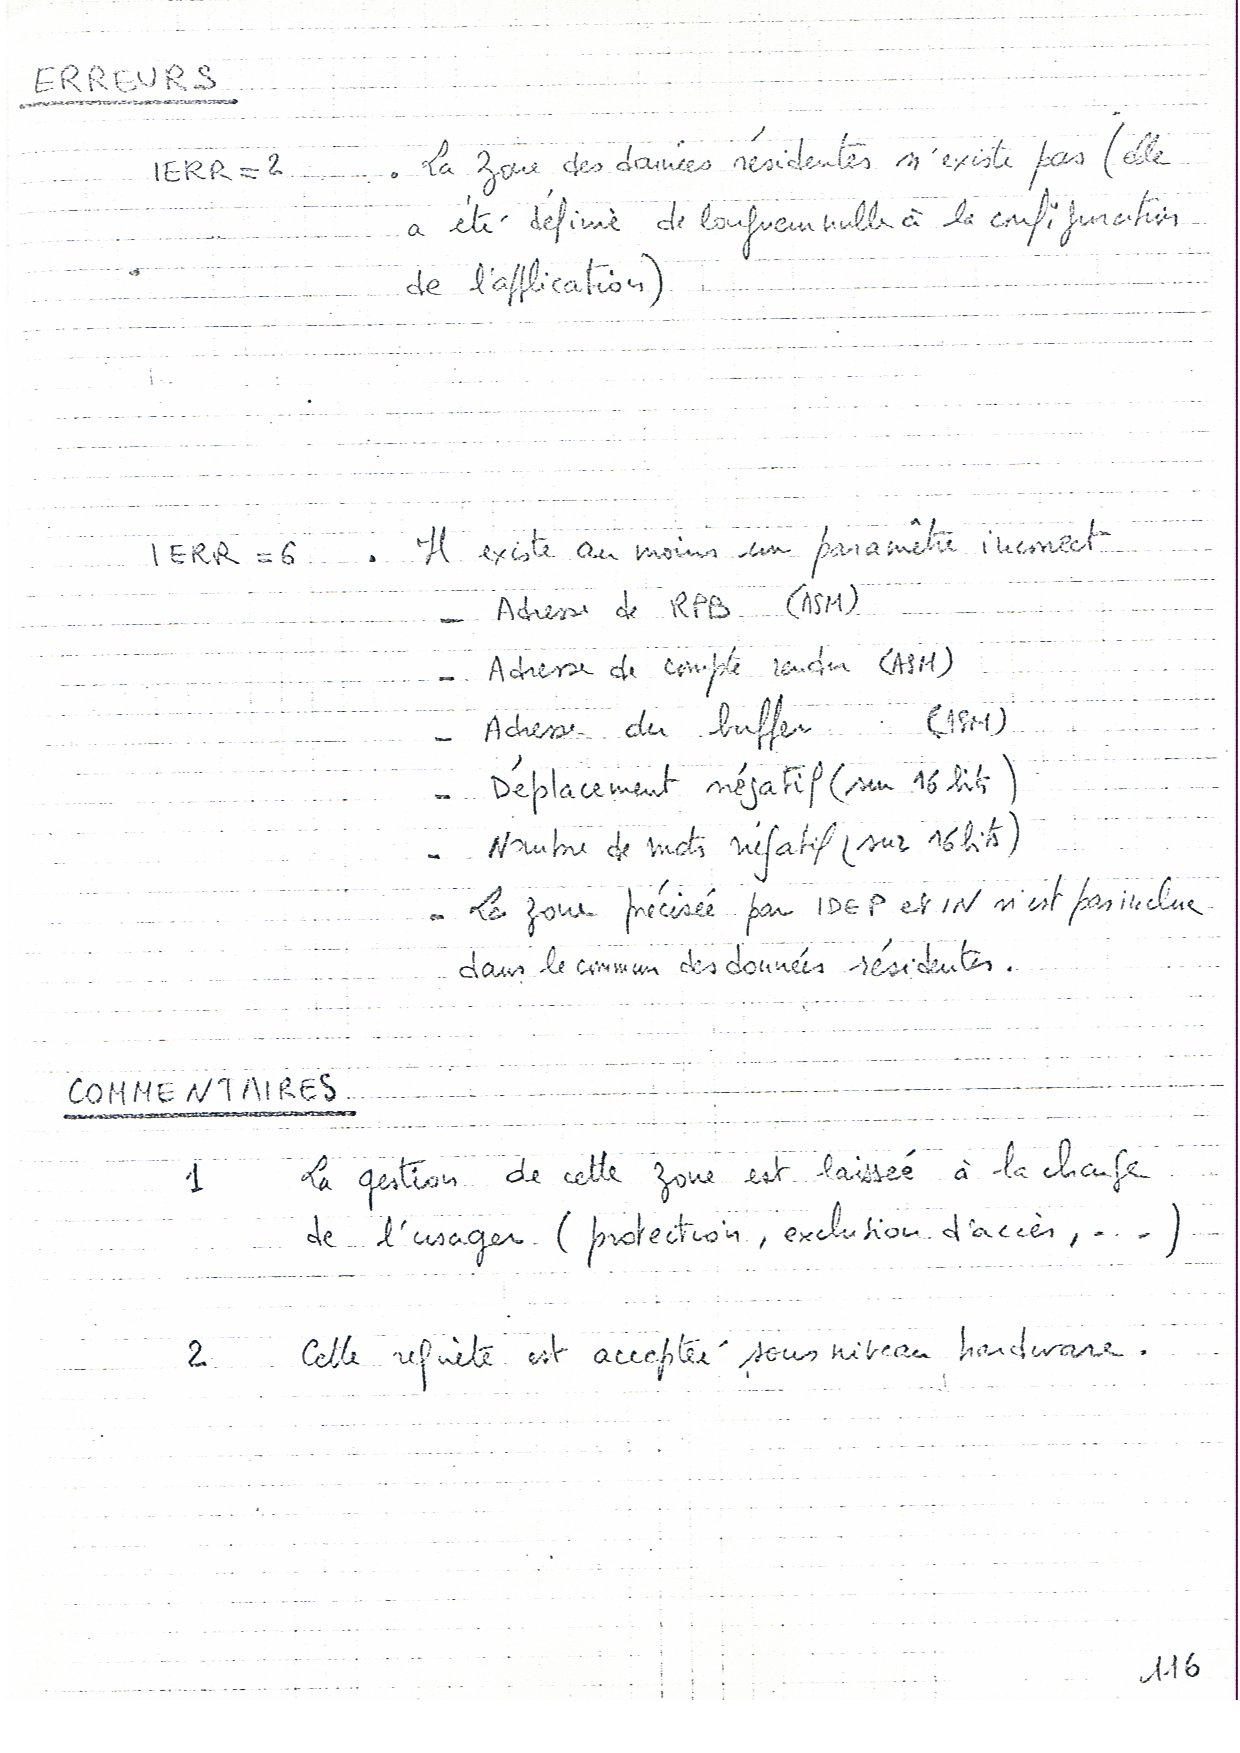 ERREURS
IERR = 2 . La zone des données résidentes n'existe pas (elle
a été définie de longueur nulle à la configuration
de l'application)
IERR = 6 . Il existe au moins un paramêtre incorrect
- Adresse de RPB (ASM)
- Adresse de compte rendu (ASM)
- Adresse du buffer (ASM)
- Déplacement négatif (sur 16 bits)
- Nombre de mots négatif (sur 16 bits)
- La zone précisée par IDEP et IN n'est pas inclue
dans le commun des données résidentes.
COMMENTAIRES
1 La gestion de cette zone est laissée à la charge
de l'usager (protection, exclusion d'accès, . . .)
2 Cette requête est acceptée sous niveau hardware.
116